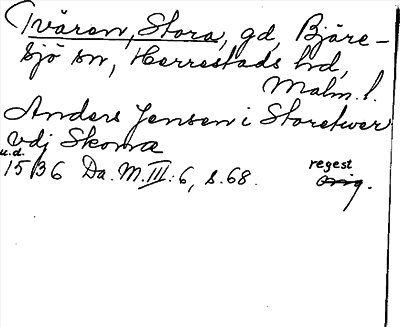 Tvären, Stora, gd, Bjäre-
sjö sn, Herrestads hd,
Malm. l.
Anders Jensen i Storetwer
vdj Skonæ
u.d.
1536 Da. M. III: 6, s. 68. regest
orig.